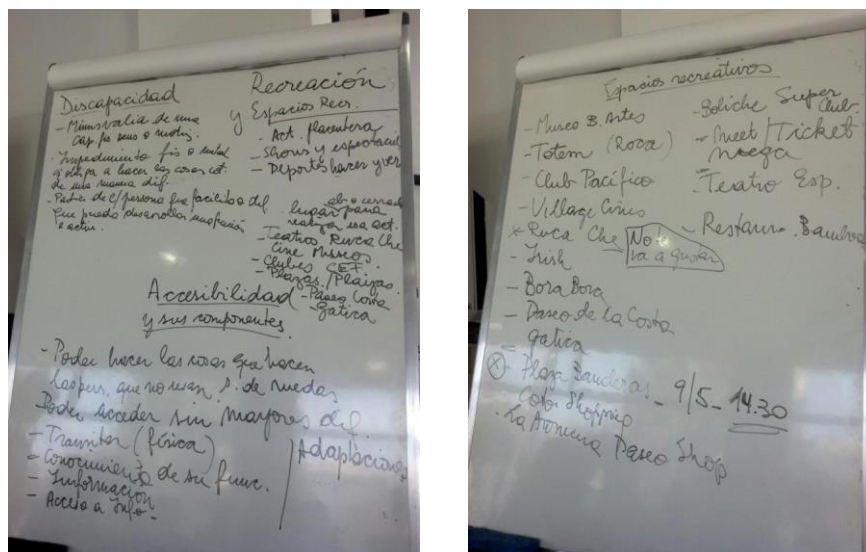 Discapacidad
- Minusvalía de una
Cap. fis sens o motriz.
- Impedimento fis o mental
q obliga a hacer las cosas cot.
de una manera dif.
de c/persona
que pueda desarrollar una función
o activ.
Recreación
y Espacios Recr.
- Act. placentera
- Shows y espectáculos
- Deportes hacer y ver
lugar para
realizar una act.
- Teatros Ruca Che
Cine Museos.
- Clubes CEF.
- Plazas/Playas.
- Paseo Costa
Gatica
Accesibilidad
y sus componentes.
- Poder hacer las cosas que hacen
las pers. que no usan s. de ruedas
Poder acceder sin mayores dif.
- Transitar (física)
- Conocimiento de su func.
- Información
- Acceso a Info-
Adaptaciones
Espacios recreativos
- Museo B. Artes
- Totem (Roca)
- Club Pacífico
- Village Cines
x Ruca Che → No te
va a gustar
- Irish
- Bora Bora
- Paseo de la Costa
- Gatica
- Plaza Banderas - 9/5 - 14.30
Shopping
- La Anónima Paseo Shop
- Boliche Super
Club.
- Meet/Ticket
- Teatro Esp.
- Restaur. Bamboo